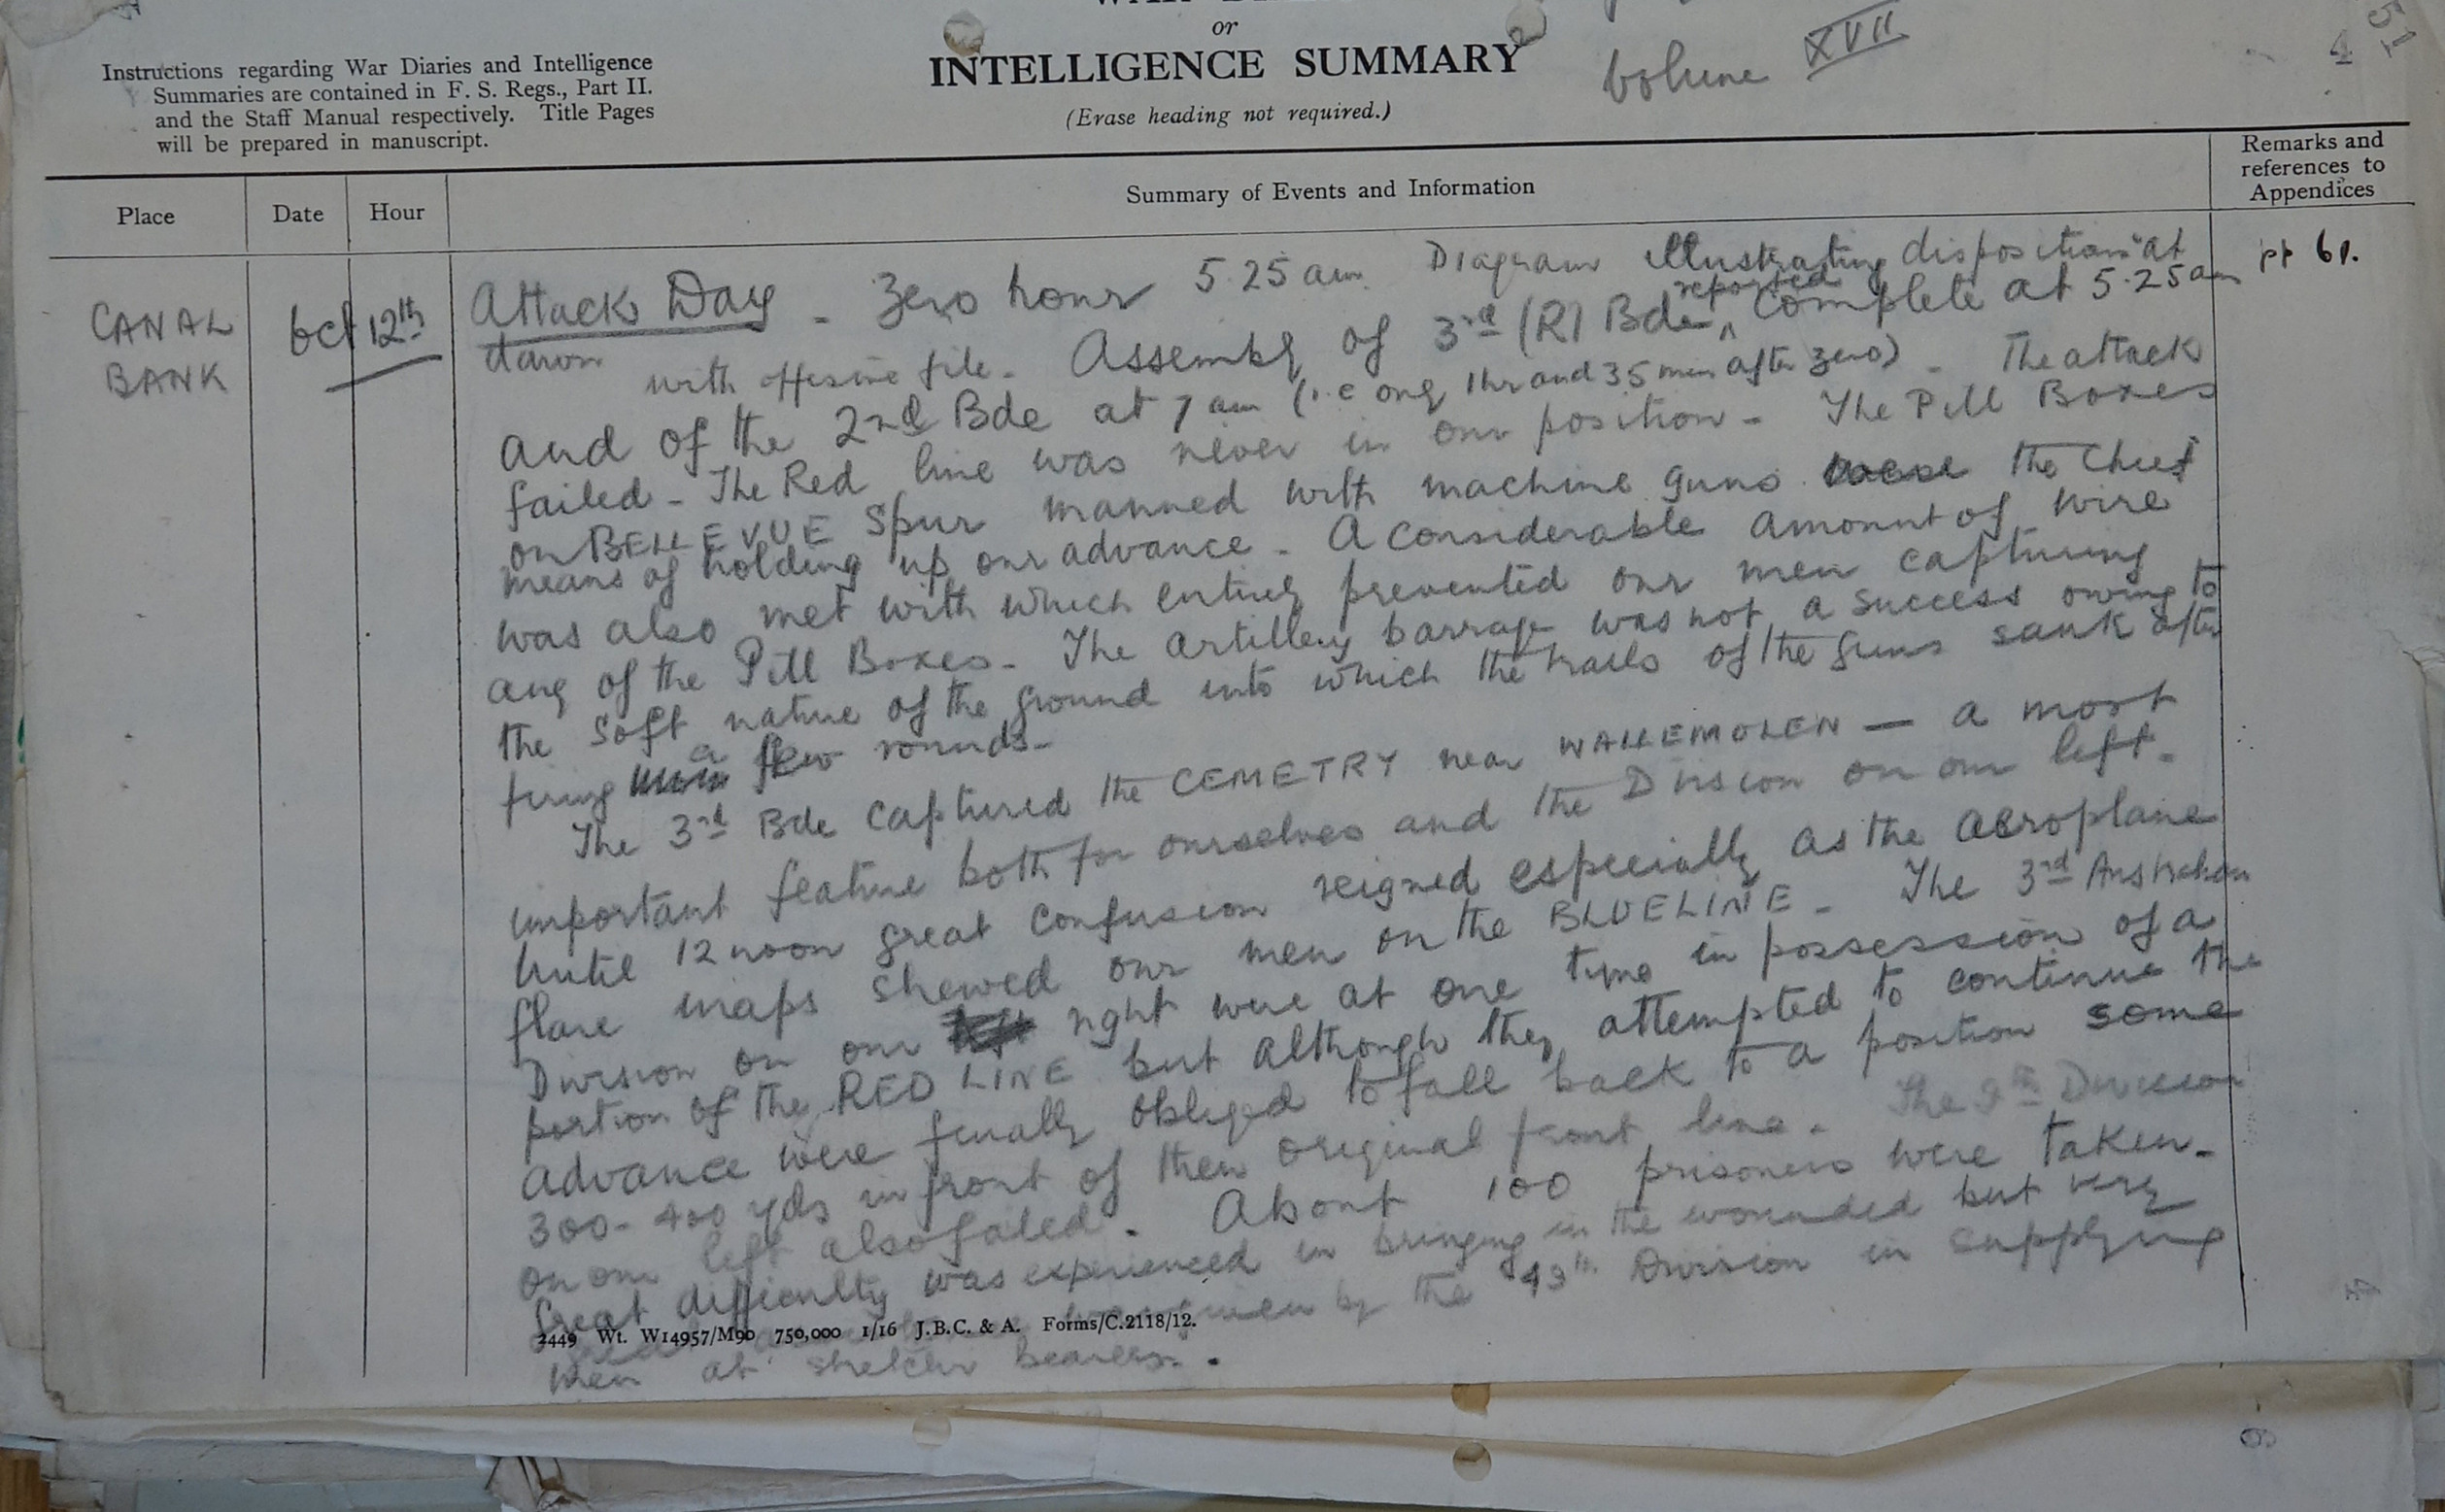 or
INTELLIGENCE SUMMARY
(Erase heading not required.)
Instructions regarding War Diaries and Intelligence
Summaries are contained in F. S. Regs., Part II.
and the Staff Manual respectively. Title Pages
will be prepared in manuscript.
Volume XVII
4
51
Place
Date
Hour
Summary of Events and Information
Remarks and
references to
Appendices
CANAL
BANK
Oct 12th
Attack Day - Zero hour 5.25 am Diagram illustrating dispositions at
dawn with offensive file. Assembly of 3rd (R) Bde reported complete at 5.25 am
and of the 2nd Bde at 7 am (i.e only 1 hr and 35 min after zero) - The attack
failed - The Red line was never in our position - The Pill Boxes
on BELLEVUE Spur manned with machine guns were the chief
means of holding up our advance - A considerable amount of wire
was also met with which entirely prevented our men capturing
any of the Pill Boxes - The artillery barrage was not a success owing to
the soft nature of the ground into which the trails of the guns sank after
firing a few rounds -
The 3rd Bde captured the CEMETRY near WALLEMOLEN — a most
important feature both for ourselves and the Division on our left -
Until 12 noon great confusion reigned especially as the aeroplane
flare maps shewed our men on the BLUE LINE - The 3rd Australian
Division on our right were at one time in possession of a
portion of the RED LINE but although they attempted to continue the
advance were finally obliged to fall back to a position some
300 - 400 yds in front of their original front line - The 9th Division
on our left also failed. About 100 prisoners were taken -
Great difficulty was experienced in bringing in the wounded but very
given by the 49th Division in supplying
men at stretcher bearers.
pp 61.
2449 Wt. W14957/M90 750,000 1/16 J.B.C. & A. Forms/C.2118/12.